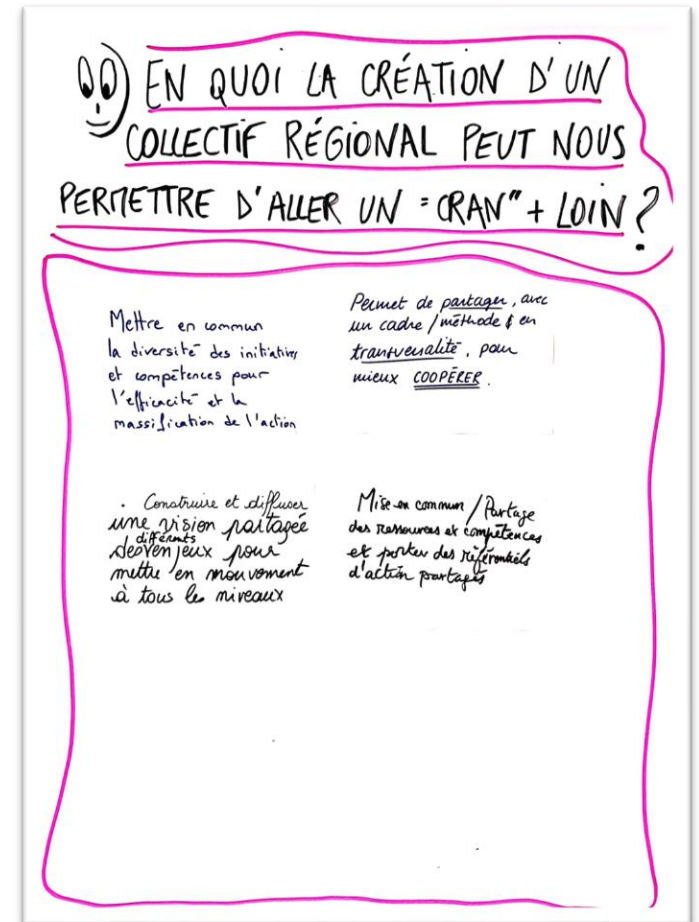 EN QUOI LA CRÉATION D'UN
COLLECTIF RÉGIONAL PEUT NOUS
PERMETTRE D'ALLER UN "CRAN" + LOIN ?
Mettre en commun
la diversité des initiatives
et compétences pour
l'efficacité et la
massification de l'action
Permet de partager, avec
un cadre / méthode & en
transversalité, pour
mieux COOPÉRER.
. Construire et diffuser
une vision partagée
des différents enjeux pour
mettre en mouvement
à tous les niveaux
Mise en commun / Partage
des Ressources et compétences
et porter des référentiels
d'action partagés